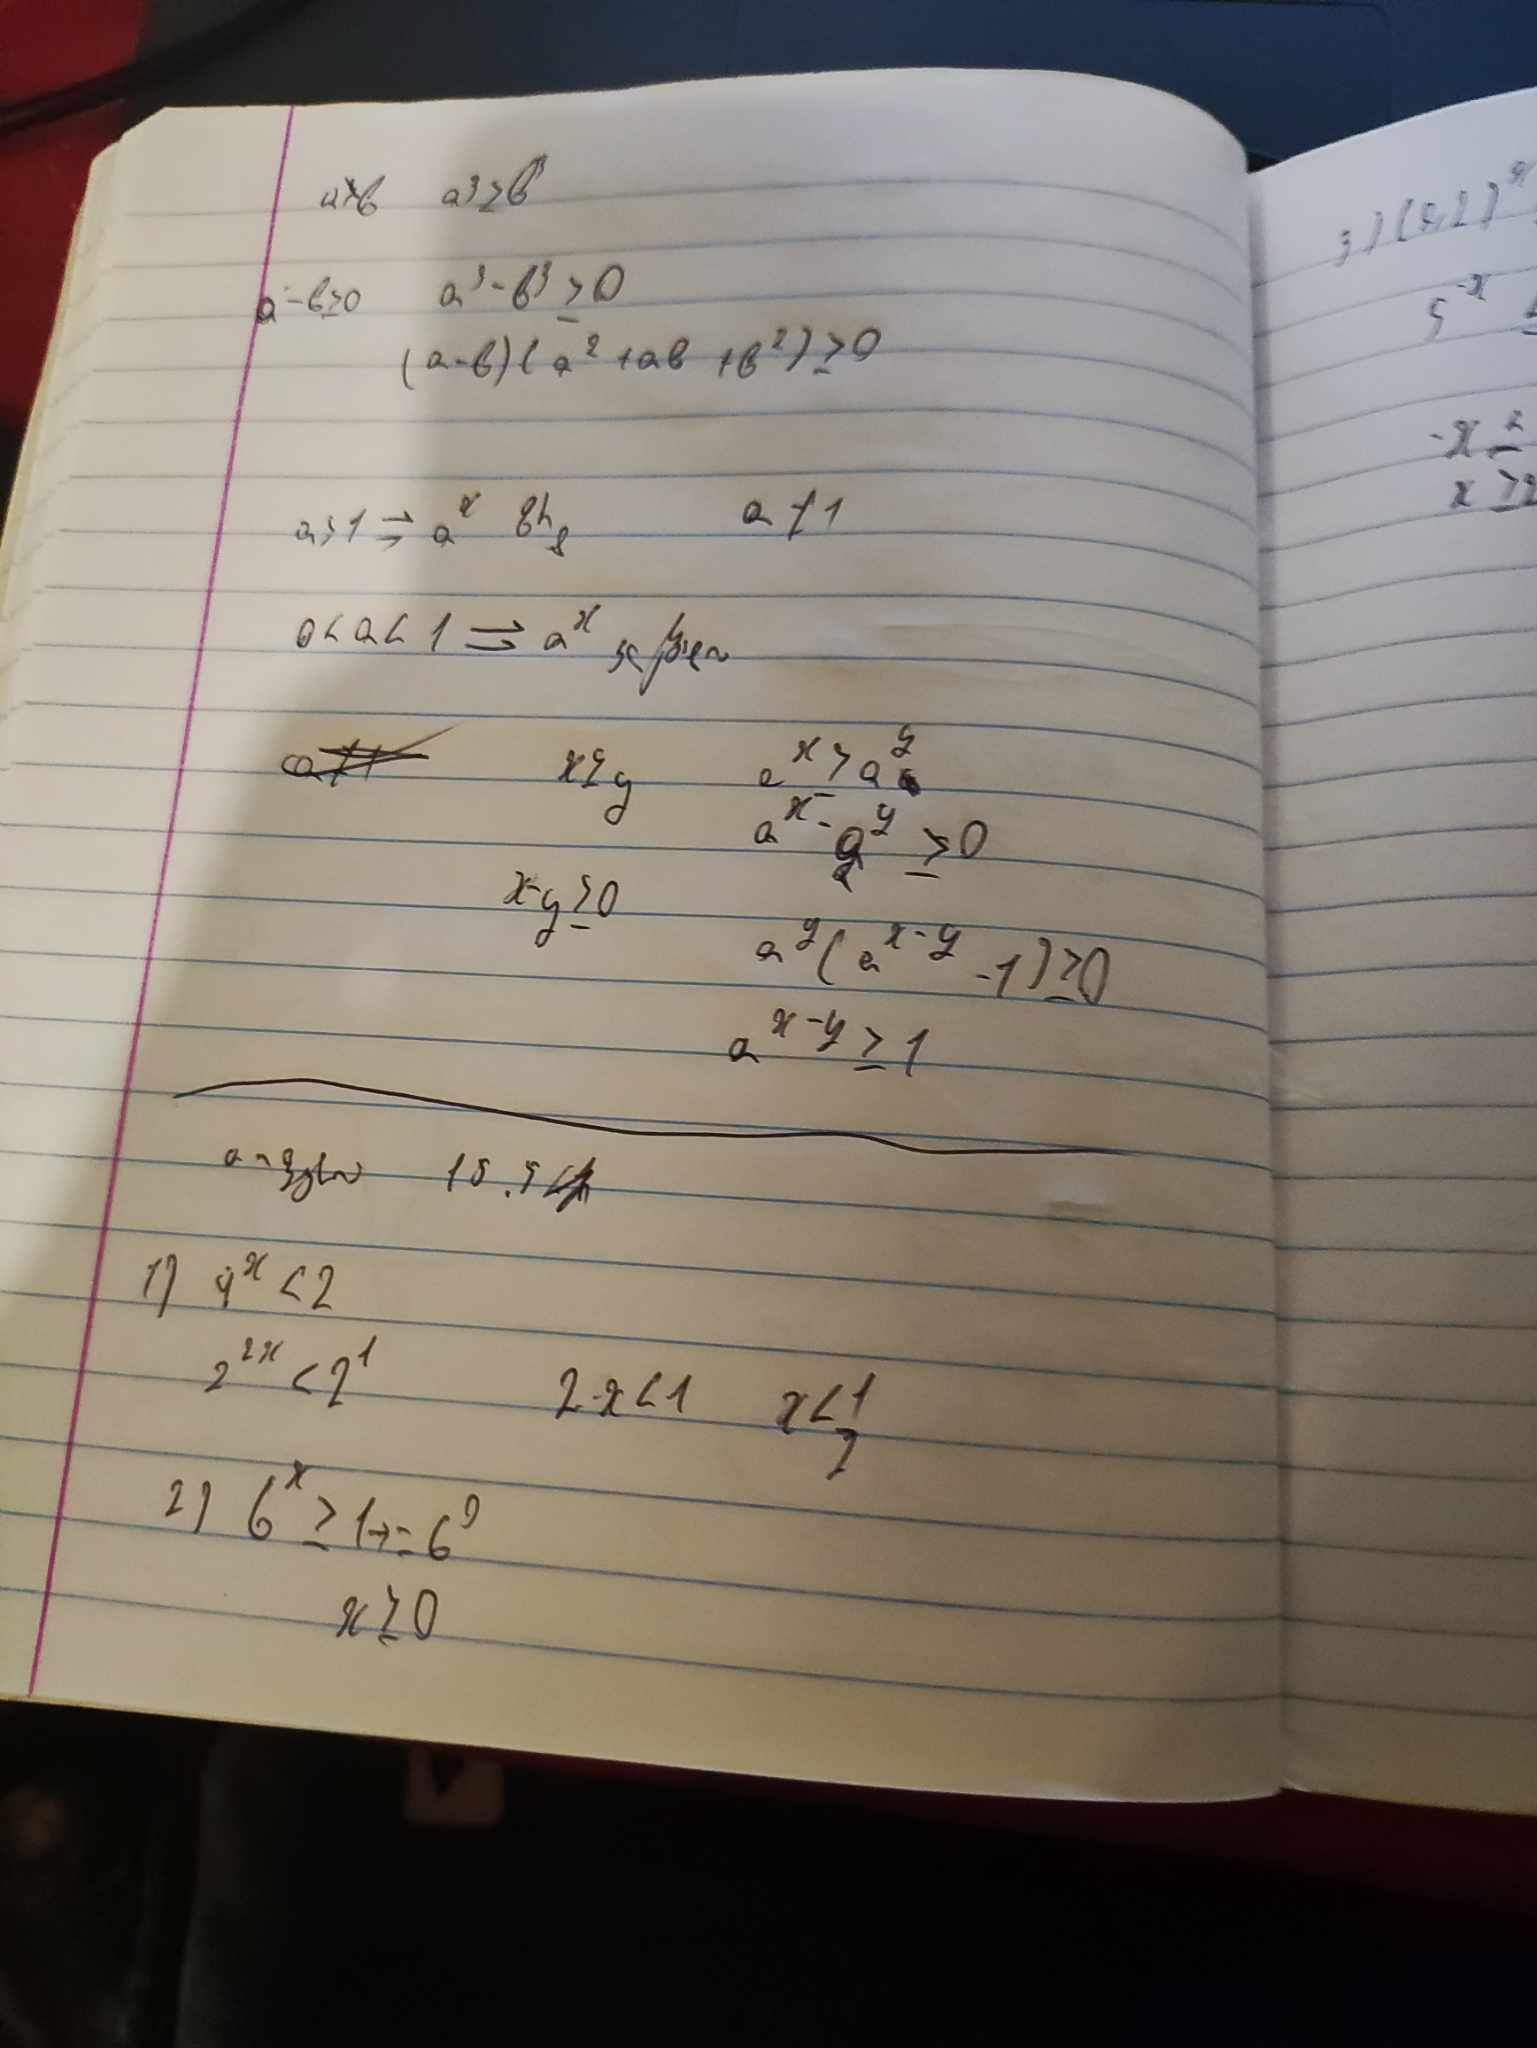 a≥b a³≥b³
a-b≥0 a³-b³≥0
(a-b)(a²+ab+b²)≥0
a>1 ⇒ aˣ a≠1
0<a<1 ⇒ aˣ
x≥y aˣ≥aʸ
aˣ-aʸ≥0
x-y≥0
aʸ(aˣ⁻ʸ-1)≥0
aˣ⁻ʸ≥1
1) 4ˣ<2
2²ˣ<2¹ 2x<1 x<1/2
2) 6ˣ≥1→=6⁰
x≥0
3)
5⁻ˣ
-x
x≥